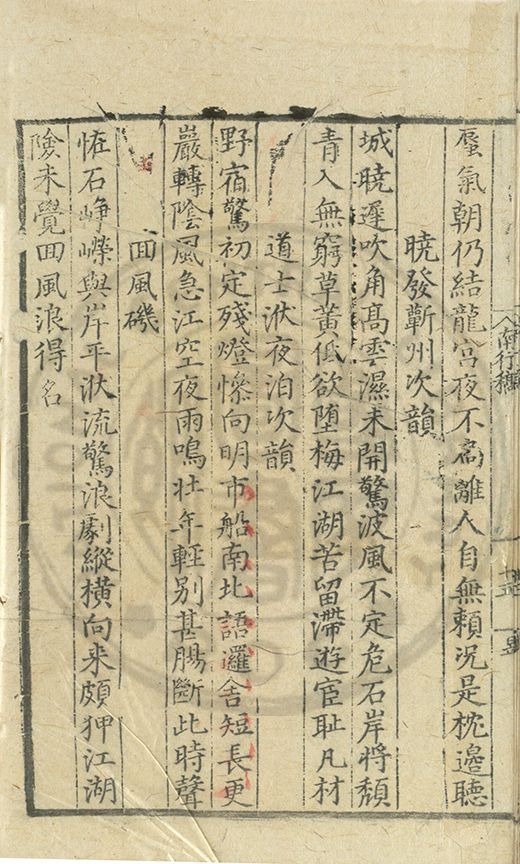 蜃氣朝仍結龍宮夜不扄離人自無賴况是枕邊聽
曉發蘄州次韻
城曉遲吹角髙雲濕未開驚波風不定危石岸將頽
青入無窮草黄低欲墮梅江湖苦留滯遊宦耻凡材
道士洑夜泊次韻
野宿驚初定殘燈慘向明市船南北語邏舍短長更
嚴轉隂風急江空夜雨鳴壮年輕别甚腸斷此時聲
回風磯
恠石崢嶸與岸平洑流驚浪劇縱横向来頗狎江湖
險未覺回風浪得名
南行